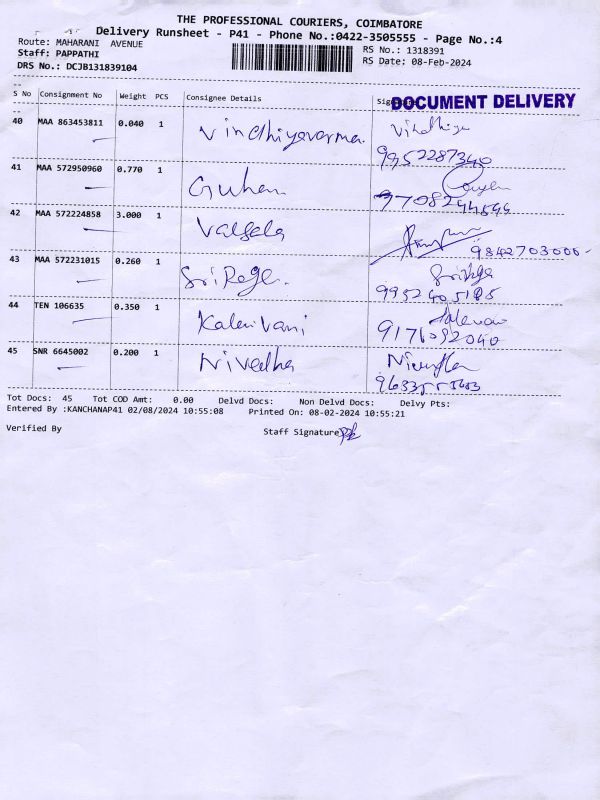 THE PROFESSIONAL COURIERS, COIMBATORE
Delivery Runsheet - P41 - Phone No.:0422-3505555 - Page No.:4
Route: MAHARANI AVENUE
RS No.: 1318391
Staff: PAPPATHI
RS Date: 08-Feb-2024
DRS No.: DCJB131839104
S No Consignment No Weight PCS Consignee Details
DOCUMENT DELIVERY
40 MAA 863453811 0.040 1 Vindhiyavarma
9952287340
41 MAA 572950960 0.770 1 Guhan
42 MAA 572224858 3.000 1 Valsala
9842703000-
43 MAA 572231015 0.260 1 Sri Rega.
9952405185
44 TEN 106635 0.350 1 Kalaivani
9171092040
45 SNR 6645002 0.200 1 Nivedha
Tot Docs: 45 Tot COD Amt: 0.00 Delvd Docs: Non Delvd Docs: Delvy Pts:
Entered By :KANCHANAP41 02/08/2024 10:55:08 Printed On: 08-02-2024 10:55:21
Verified By Staff Signature